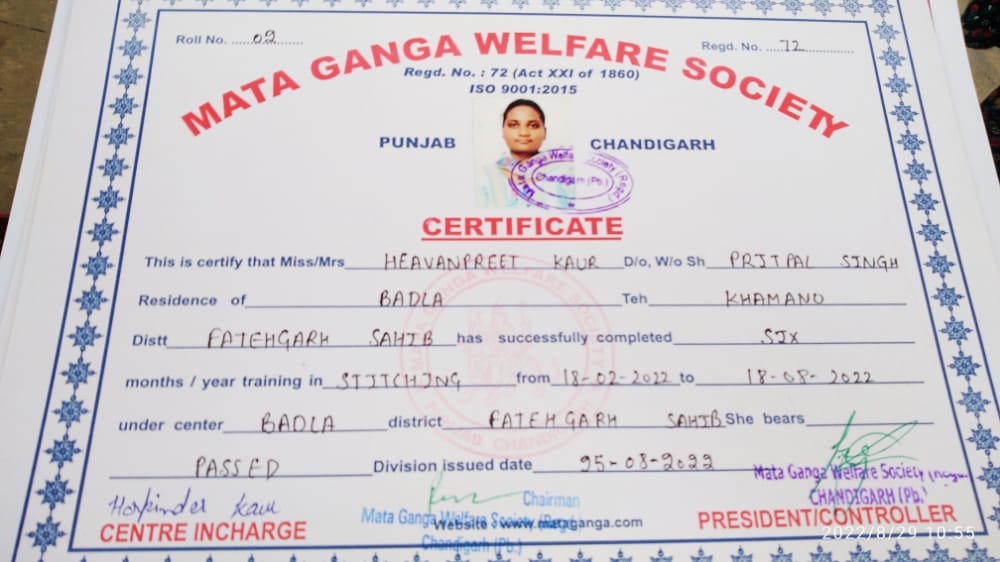 Roll No. ......02......
Regd. No. ....72..............
MATA GANGA WELFARE SOCIETY
Regd. No. : 72 (Act XXI of 1860)
ISO 9001:2015
PUNJAB CHANDIGARH
Mata Ganga Welfa Society (Regd)
Chandigarh (Pb.)
CERTIFICATE
This is certify that Miss/Mrs HEAVANPREET KAUR D/o, W/o Sh PRITPAL SINGH
Residence of BADLA Teh KHAMANO
Distt FATEHGARH SAHIB has successfully completed SIX
months / year training in STITCHING from 18-02-2022 to 18-08-2022
under center BADLA district FATEHGARH SAHIB She bears
PASSED Division issued date 25-08-2022
MATA GANGA WELFARE SOCIETY
PUNJAB CHANDIGARH
Harpinder Kaur
CENTRE INCHARGE
Chairman
Mata Ganga Welfare Society
Chandigarh (Pb.)
Website : www.mataganga.com
Mata Ganga Welfare Society
CHANDIGARH (Pb.)
PRESIDENT/CONTROLLER
2022/8/29 10:55